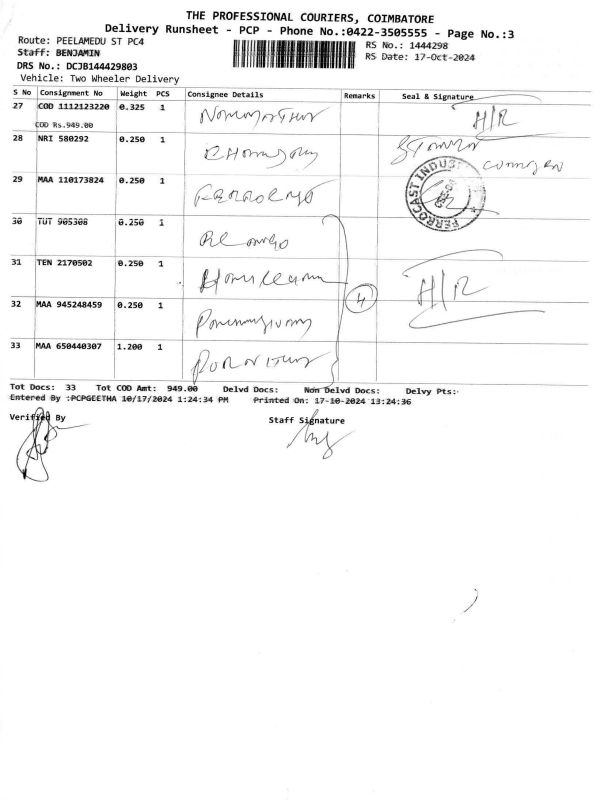 THE PROFESSIONAL COURIERS, COIMBATORE
Delivery Runsheet - PCP - Phone No.:0422-3505555 - Page No.:3
Route: PEELAMEDU ST PC4
RS No.: 1444298
Staff: BENJAMIN
RS Date: 17-Oct-2024
DRS No.: DCJB144429803
Vehicle: Two Wheeler Delivery
S No Consignment No Weight PCS Consignee Details Remarks Seal & Signature
27 COD 1112123220 0.325 1 H/R
COD Rs.949.00
28 NRI 580292 0.250 1
29 MAA 110173824 0.250 1
FERROCAST INDUS
30 TUT 905308 0.250 1
31 TEN 2170502 0.250 1 4 H/R
32 MAA 945248459 0.250 1
33 MAA 650440307 1.200 1
Tot Docs: 33 Tot COD Amt: 949.00 Delvd Docs: Non Delvd Docs: Delvy Pts:
Entered By :PCPGEETHA 10/17/2024 1:24:34 PM Printed On: 17-10-2024 13:24:36
Verified By
Staff Signature